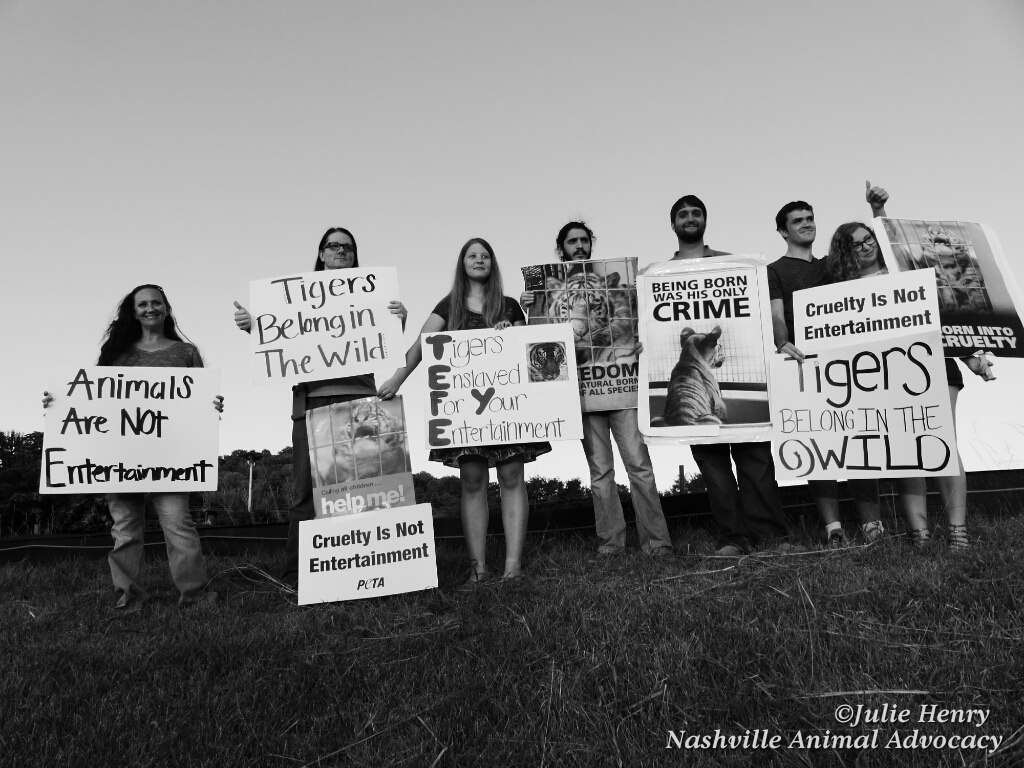 Animals
Are Not
Entertainment
Tigers
Belong in
The Wild
Calling all children...
help me!
Cruelty Is Not
Entertainment
PETA
Tigers
Enslaved
For Your
Entertainment
EDOM
NATURAL BORN
OF ALL SPECIES
BEING BORN
WAS HIS ONLY
CRIME
Cruelty Is Not
Entertainment
Tigers
BELONG IN THE
WILD
BORN INTO
CRUELTY
©Julie Henry
Nashville Animal Advocacy